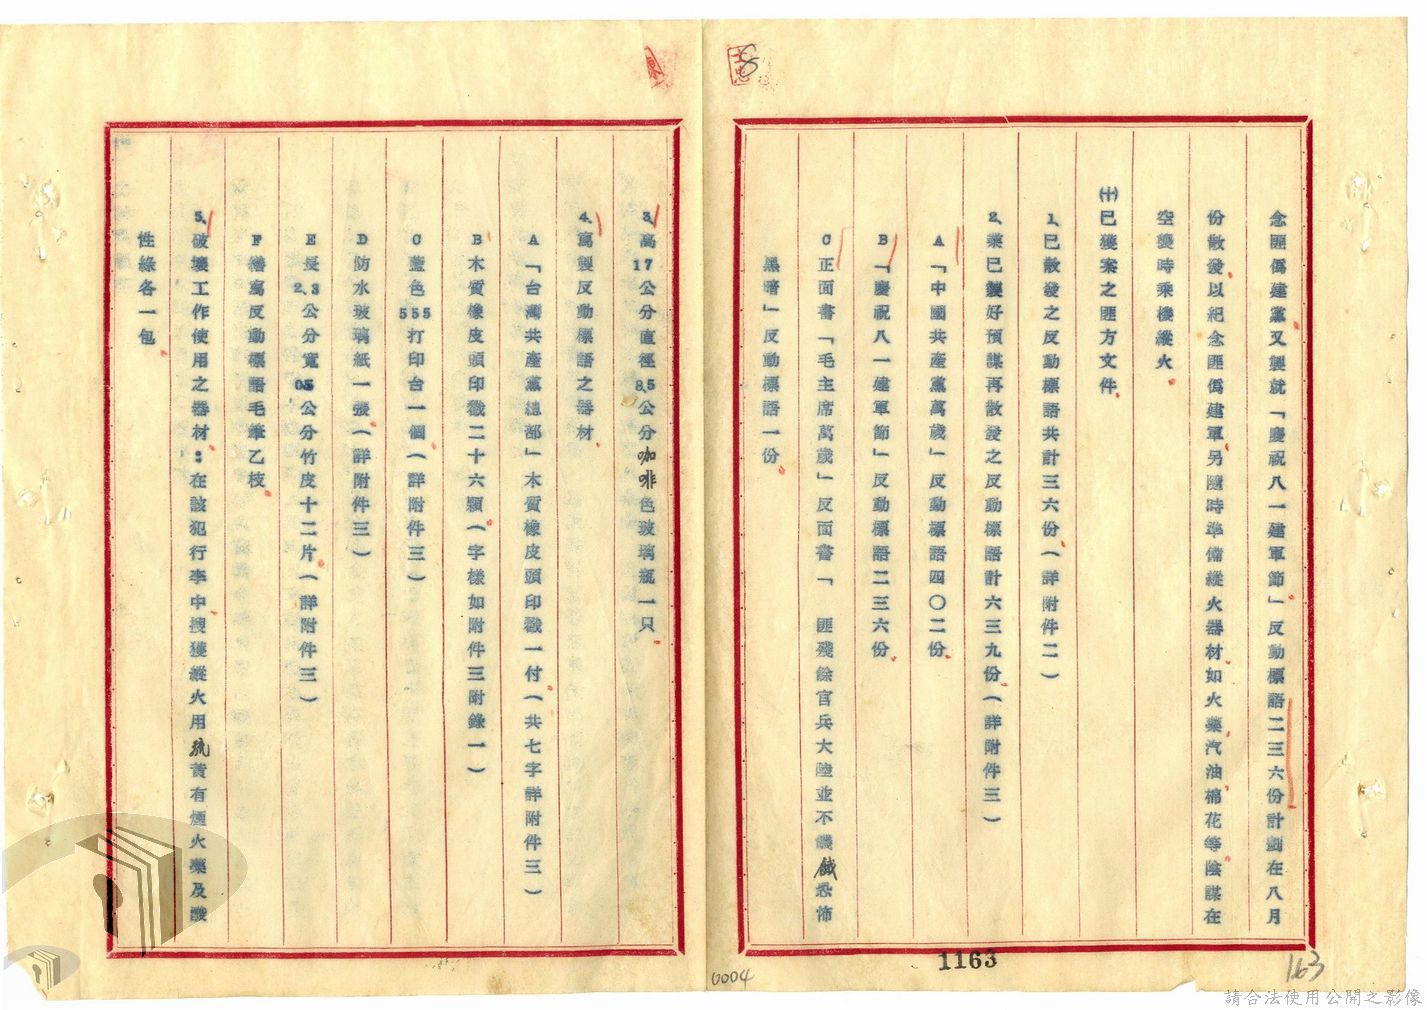 念匪偽建黨又製就「慶祝八一建軍節」反動標語二三六份計劃在八月
份散發以紀念匪偽建軍另隨時準備縱火器材如火藥汽油棉花等陰謀在
空襲時乘機縱火
㈩已獲案之匪方文件
1、已散發之反動標語共計三六份(詳附件二)
2、業已製好預謀再散發之反動標語計六三九份(詳附件三)
A「中國共產黨萬歲」反動標語四〇二份
B「慶祝八一建軍節」反動標語二三六份
C正面書「毛主席萬歲」反面書「匪殘餘官兵大陸並不饑餓恐怖
黑暗」反動標語一份
3、高17公分直徑8.5公分咖啡色玻璃瓶一只
4、寫製反動標語之器材
A「台灣共產黨總部」木質橡皮頭印戳一付(共七字詳附件三)
B木質橡皮頭印戳二十六顆(字樣如附件三附錄一)
C藍色555打印台一個(詳附件三)
D防水玻璃紙一張(詳附件三)
E長2.3公分寬05公分竹皮十二片(詳附件三)
F繕寫反動標語毛筆乙枝
5、破壞工作使用之器材:在該犯行李中搜獲縱火用硫黃有煙火藥及酸
性綠各一包
1163
163
0004
8
請合法使用公開之影像